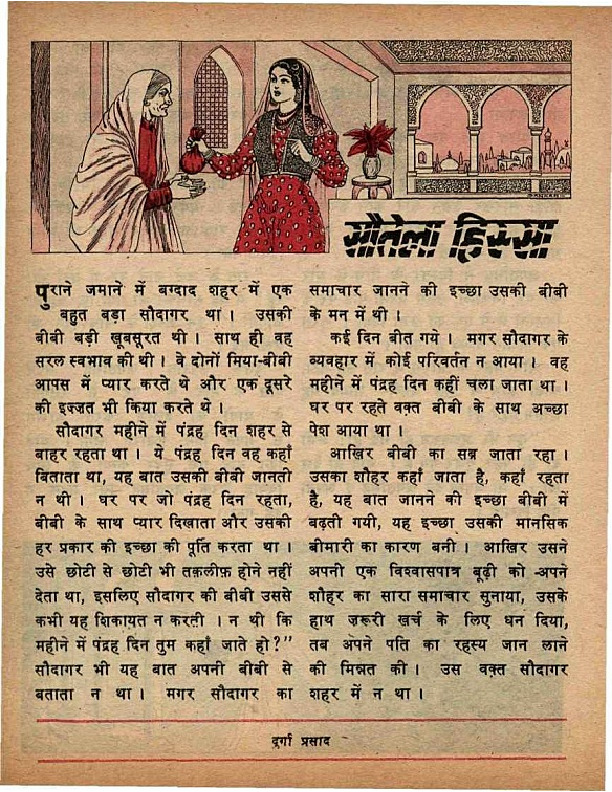 सौतेला हिस्सा
पुराने जमाने में बग्दाद शहर में एक
बहुत बड़ा सौदागर था । उसकी
बीबी बड़ी खूबसूरत थी । साथ ही वह
सरल स्वभाव की थी । वे दोनों मिया-बीबी
आपस में प्यार करते थे और एक दूसरे
की इज्जत भी किया करते थे ।
सौदागर महीने में पंद्रह दिन शहर से
बाहर रहता था । ये पंद्रह दिन वह कहाँ
बिताता था, यह बात उसकी बीबी जानती
न थी । घर पर जो पंद्रह दिन रहता,
बीबी के साथ प्यार दिखाता और उसकी
हर प्रकार की इच्छा की पूर्ति करता था ।
उसे छोटी से छोटी भी तक़लीफ़ होने नहीं
देता था, इसलिए सौदागर की बीबी उससे
कभी यह शिकायत न करती । न थी कि
महीने में पंद्रह दिन तुम कहाँ जाते हो?”
सौदागर भी यह बात अपनी बीबी से
बताता न था । मगर सौदागर का
समाचार जानने की इच्छा उसकी बीबी
के मन में थी ।
कई दिन बीत गये । मगर सौदागर के
व्यवहार में कोई परिवर्तन न आया । वह
महीने में पंद्रह दिन कहीं चला जाता था ।
घर पर रहते वक़्त बीबी के साथ अच्छा
पेश आया था ।
आखिर बीबी का सब्र जाता रहा ।
उसका शौहर कहाँ जाता है, कहाँ रहता
है, यह बात जानने की इच्छा बीबी में
बढ़ती गयी, यह इच्छा उसकी मानसिक
बीमारी का कारण बनी । आखिर उसने
अपनी एक विश्वासपात्र बूढ़ी को -अपने
शौहर का सारा समाचार सुनाया, उसके
हाथ ज़रूरी खर्च के लिए धन दिया,
तब अपने पति का रहस्य जान लाने
की मिन्नत की । उस वक़्त सौदागर
शहर में न था ।
दुर्गा प्रसाद